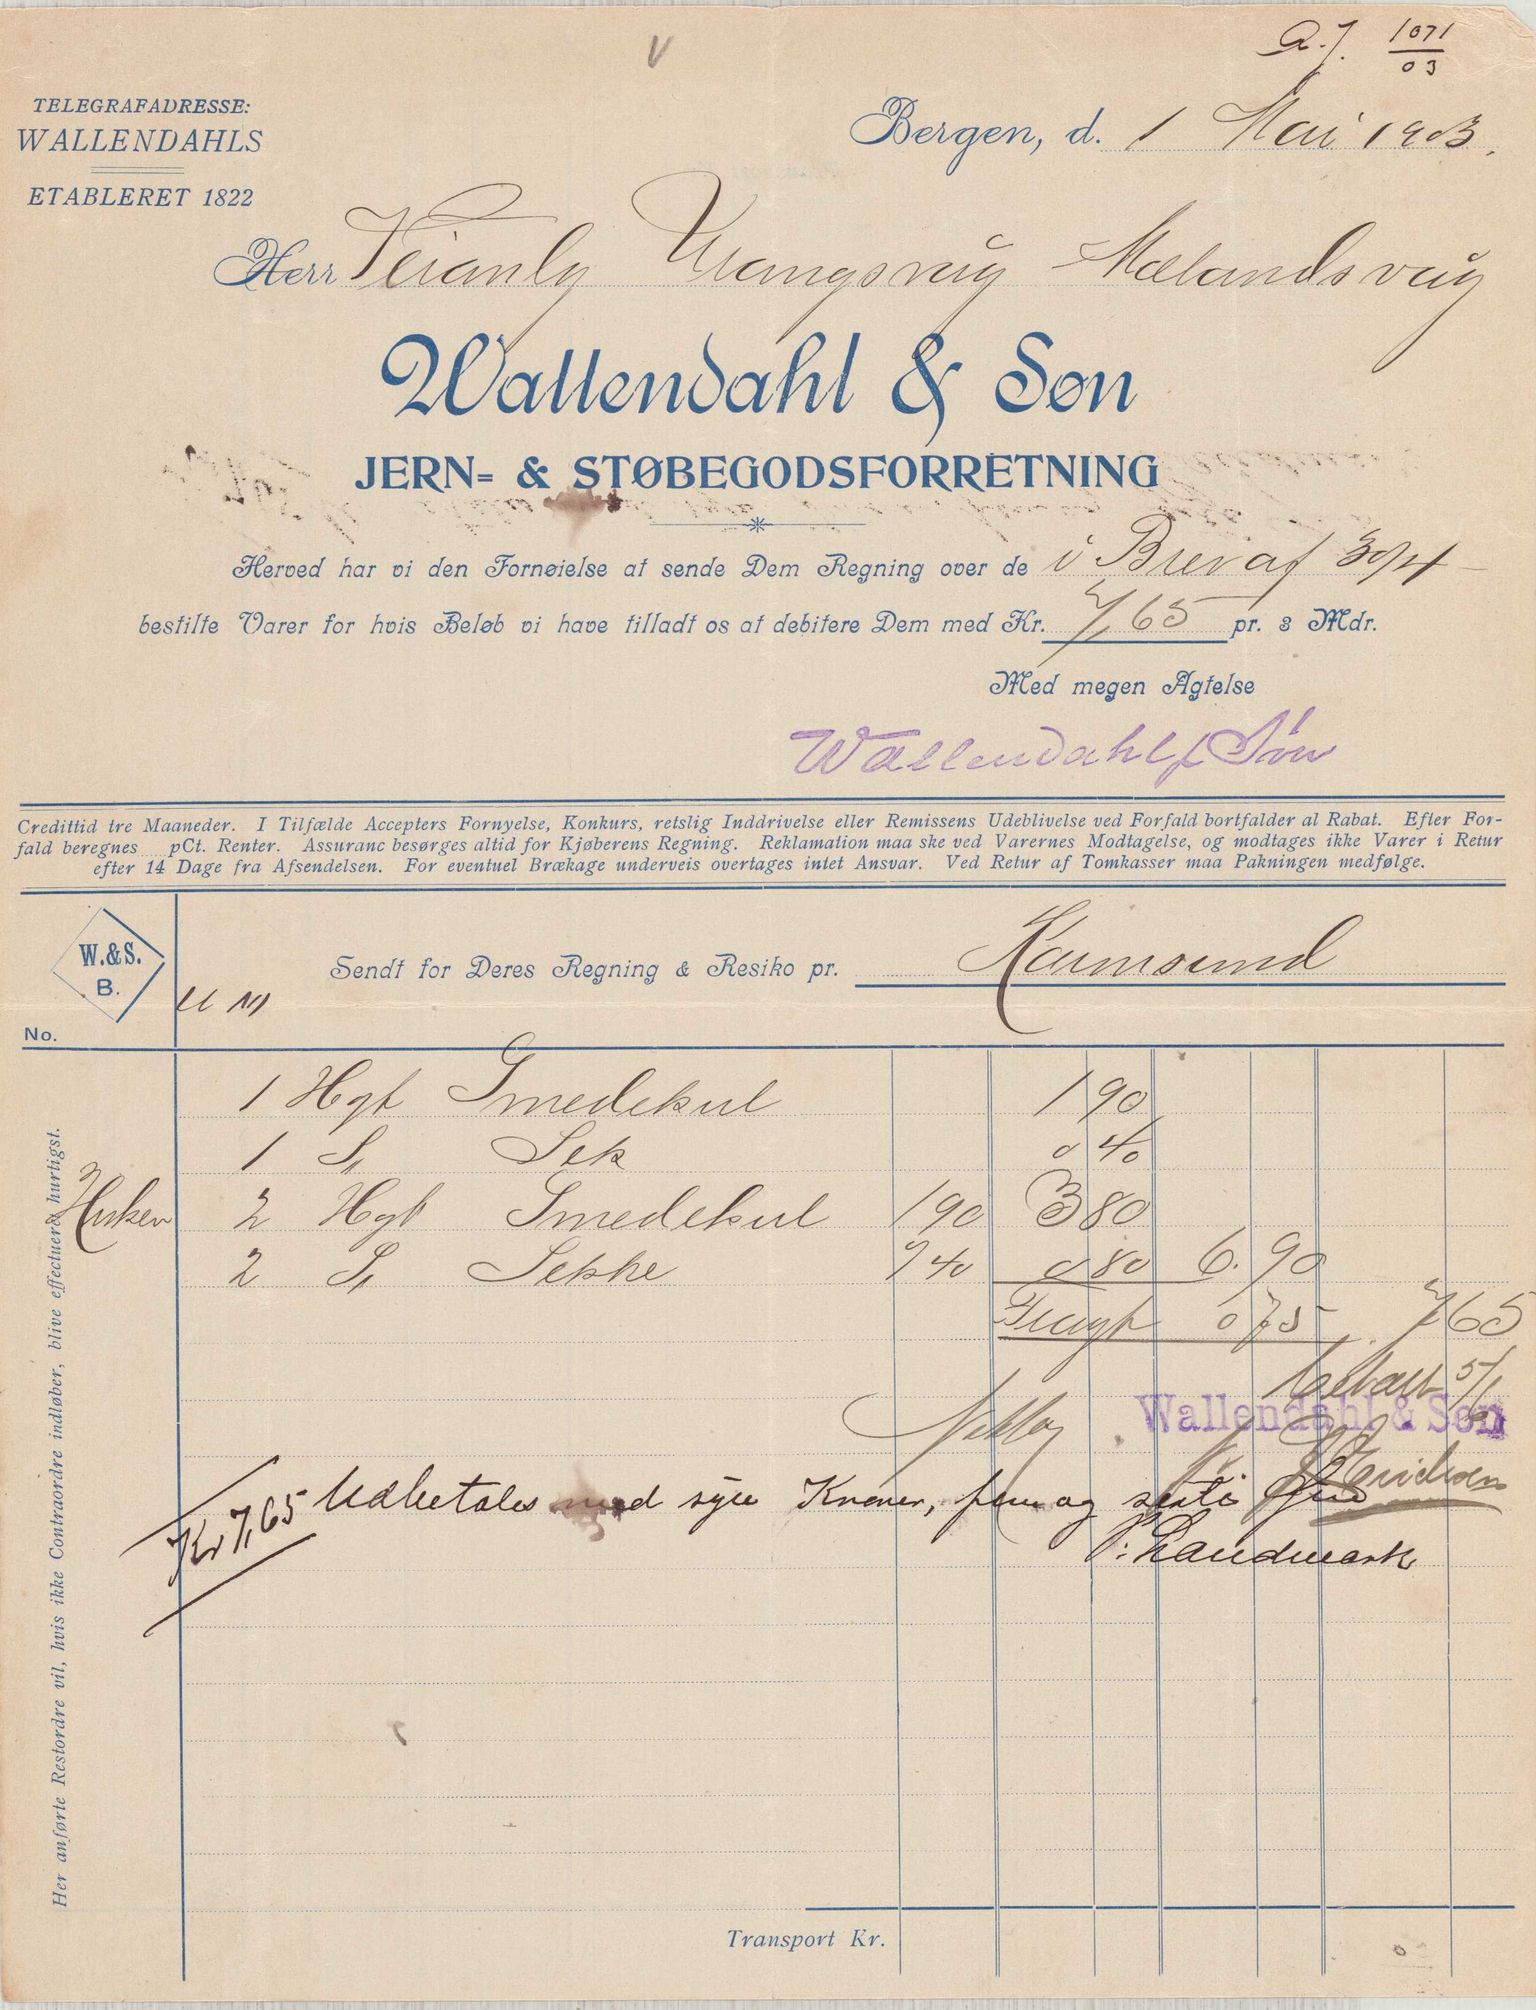 A.J. 1071/03
V
TELEGRAFADRESSE:
WALLENDAHLS
ETABLERET 1822
Bergen, d. 1 Mai 1903.
Herr Veianlg Vrangsvåg Mælandsvåg
Wallendahl & Søn
JERN- & STØBEGODSFORRETNING
Herved har vi den Fornøielse at sende Dem Regning over de i Brev af 30/4
bestilte Varer for hvis Beløb vi have tilladt os at debitere Dem med Kr. 7,65 pr. 3 Mdr.
Med megen Agtelse
Wallendahl & Søn
Credittid tre Maaneder. I Tilfælde Accepters Fornyelse, Konkurs, retslig Inddrivelse eller Remissens Udeblivelse ved Forfald bortfalder al Rabat. Efter For-
fald beregnes pCt. Renter. Assuranc besørges altid for Kjøberens Regning. Reklamation maa ske ved Varernes Modtagelse, og modtages ikke Varer i Retur
efter 14 Dage fra Afsendelsen. For eventuel Brækage underveis overtages intet Ansvar. Ved Retur af Tomkasser maa Pakningen medfølge.
W.&S.
B.
No.
Sendt for Deres Regning & Resiko pr. Karmsund
1 Hgt Smedekul 1 90
1 S. Sek 0 40
2 Hgt Smedekul 190 3 80
2 S. Sekke 40 0 80 6.90
Fragt 0 75 7 65
Betalt 5/6
Wallendahl & Søn
Kr 7,65 Udbetales med syv Kroner, fem og sexti øre
Landmark
Her anførte Restordre vil, hvis ikke Contraordre indløber, blive effectueret hurtigst.
Transport Kr.